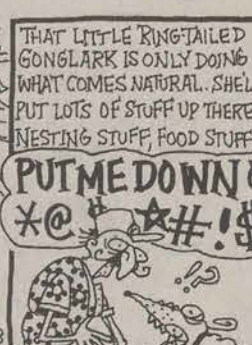 THAT LITTLE RINGTAILED
GONGLARK IS ONLY DOING
WHAT COMES NATURAL. SHE'LL
PUT LOTS OF STUFF UP THERE
NESTING STUFF, FOOD STUFF
PUT ME DOWN
*@ $ ★#!$
!?